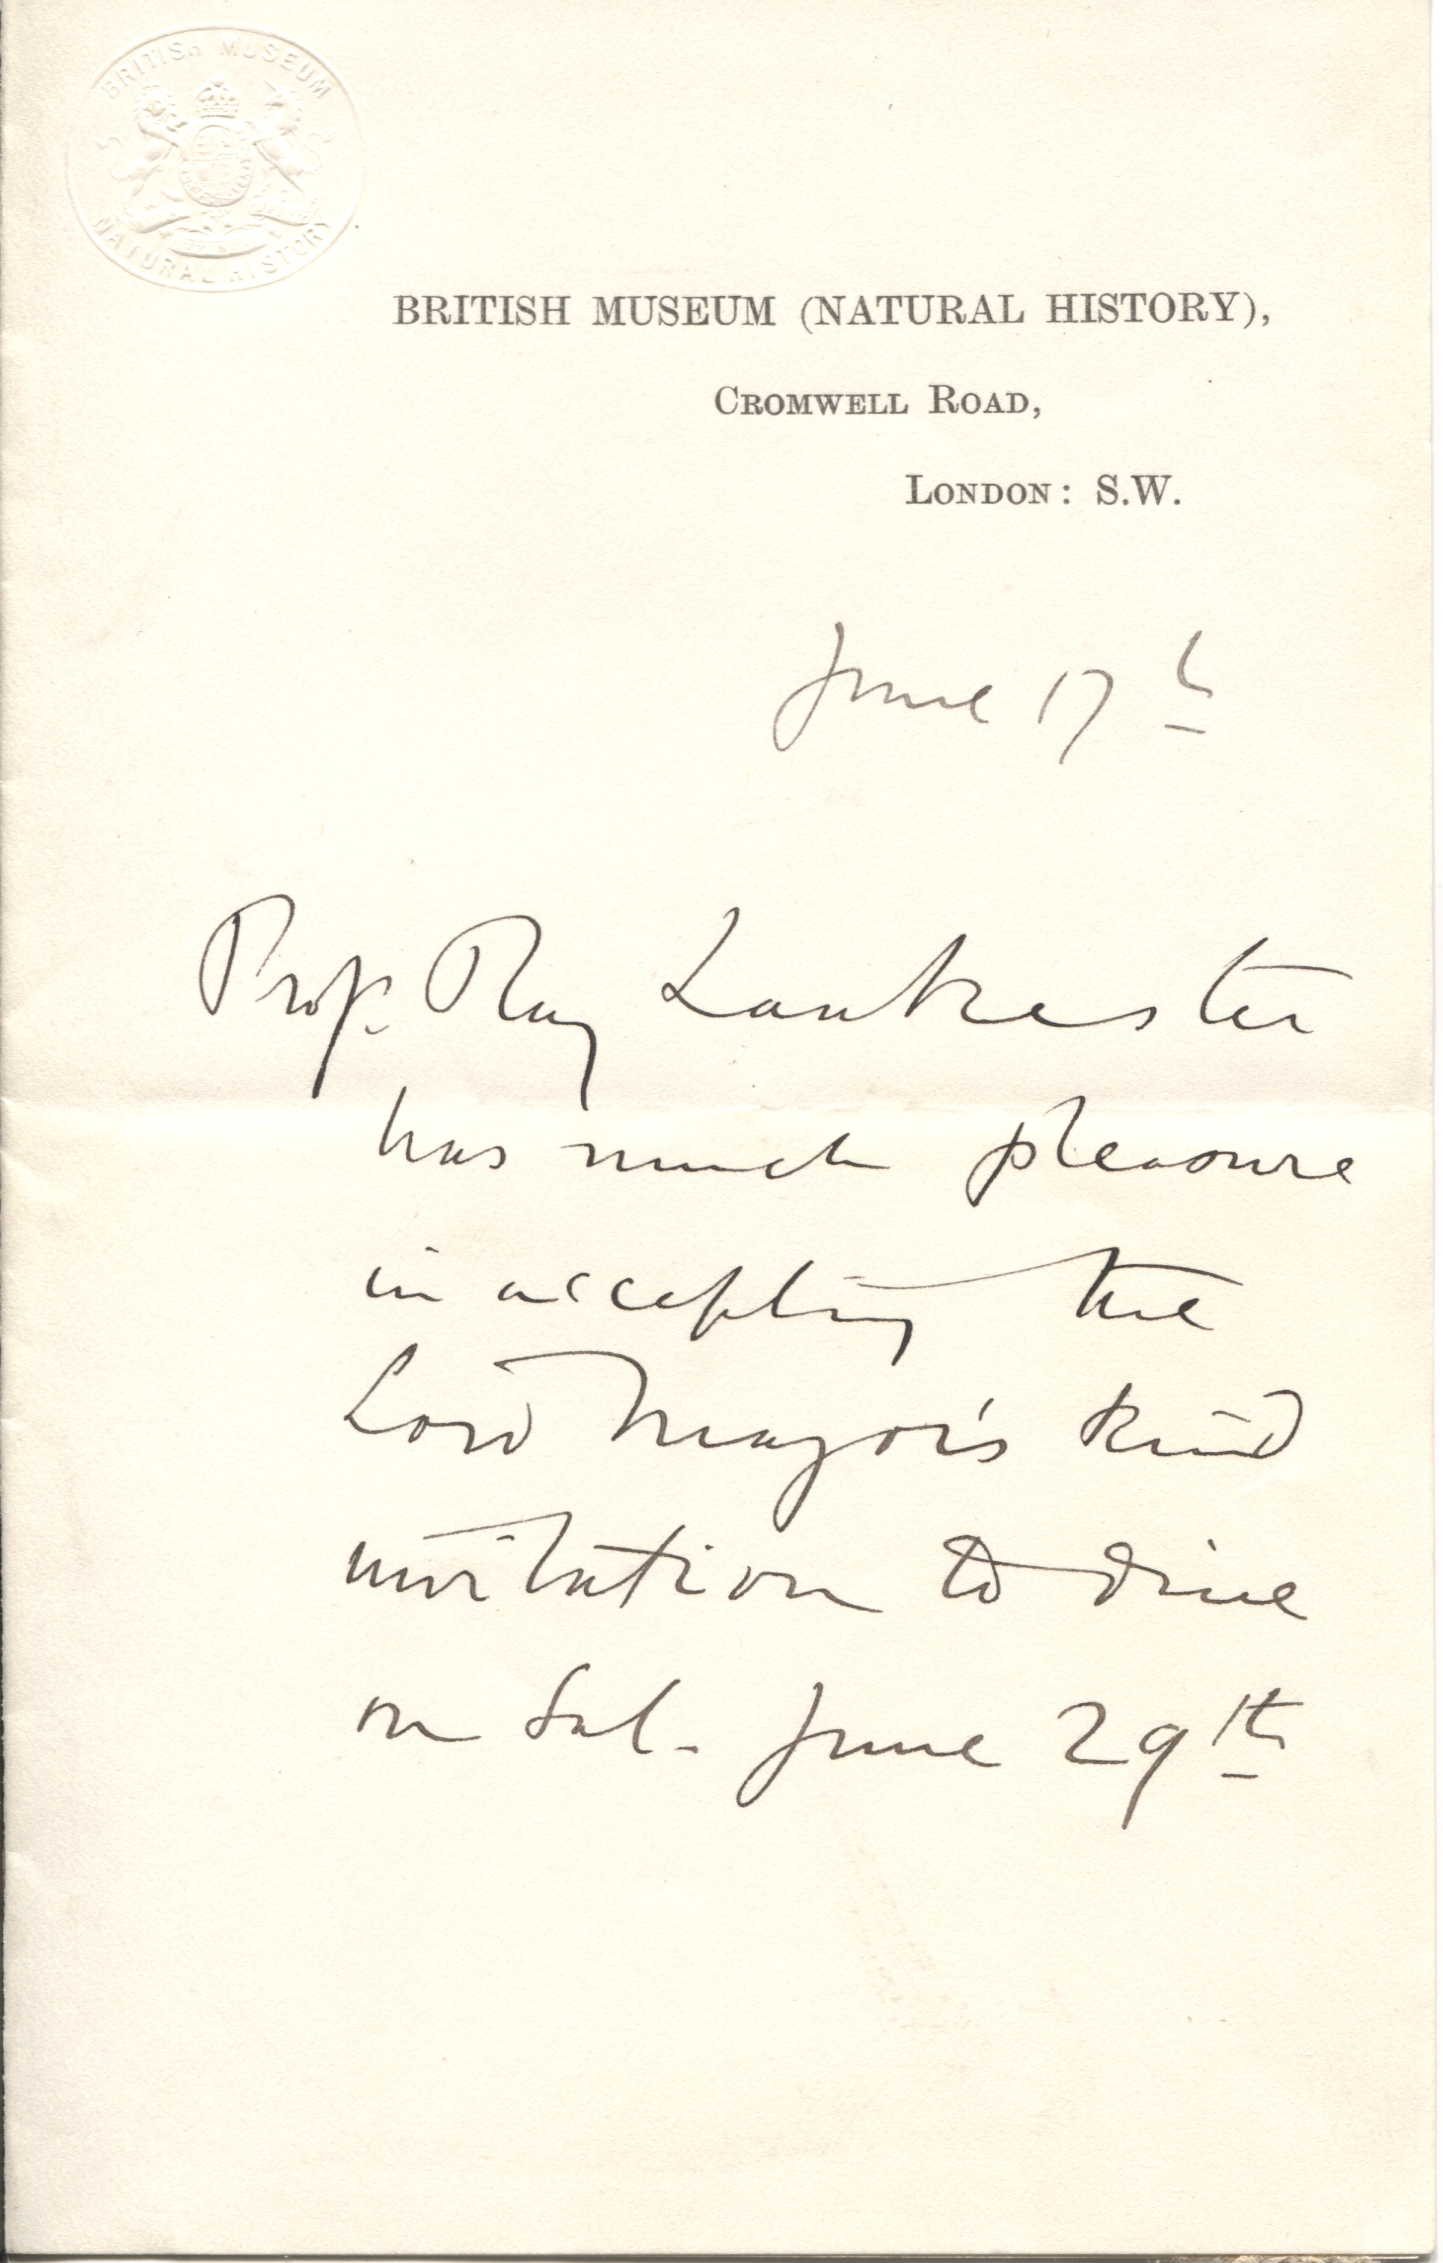 BRITISH MUSEUM
NATURAL HISTORY
BRITISH MUSEUM (NATURAL HISTORY),
CROMWELL ROAD,
LONDON: S.W.
June 17th
Prof. Ray Lankester
has much pleasure
in accepting the
Lord Mayor's kind
invitation to dine
on Sat. June 29th